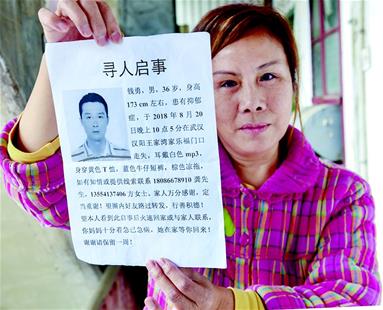 寻人启事
钱勇，男，36岁，身高
173 cm 左右，患有抑郁
症，于 2018 年 8 月 20
日晚上 10 点 5 分在武汉
汉阳王家湾家乐福门口
走失，耳戴白色 mp3，
身穿黄色 T 恤，蓝色牛仔短裤，棕色凉拖，
如有知情或提供线索联系 18086678910 龚先
生，13554137406 方女士，家人万分感谢，定
当重谢！望圈内好友路过转发，行善积德！
望本人看到此启事后火速回家或与家人联系，
你妈妈十分着急已急病，她在家等你回来！
谢谢请保留一周！